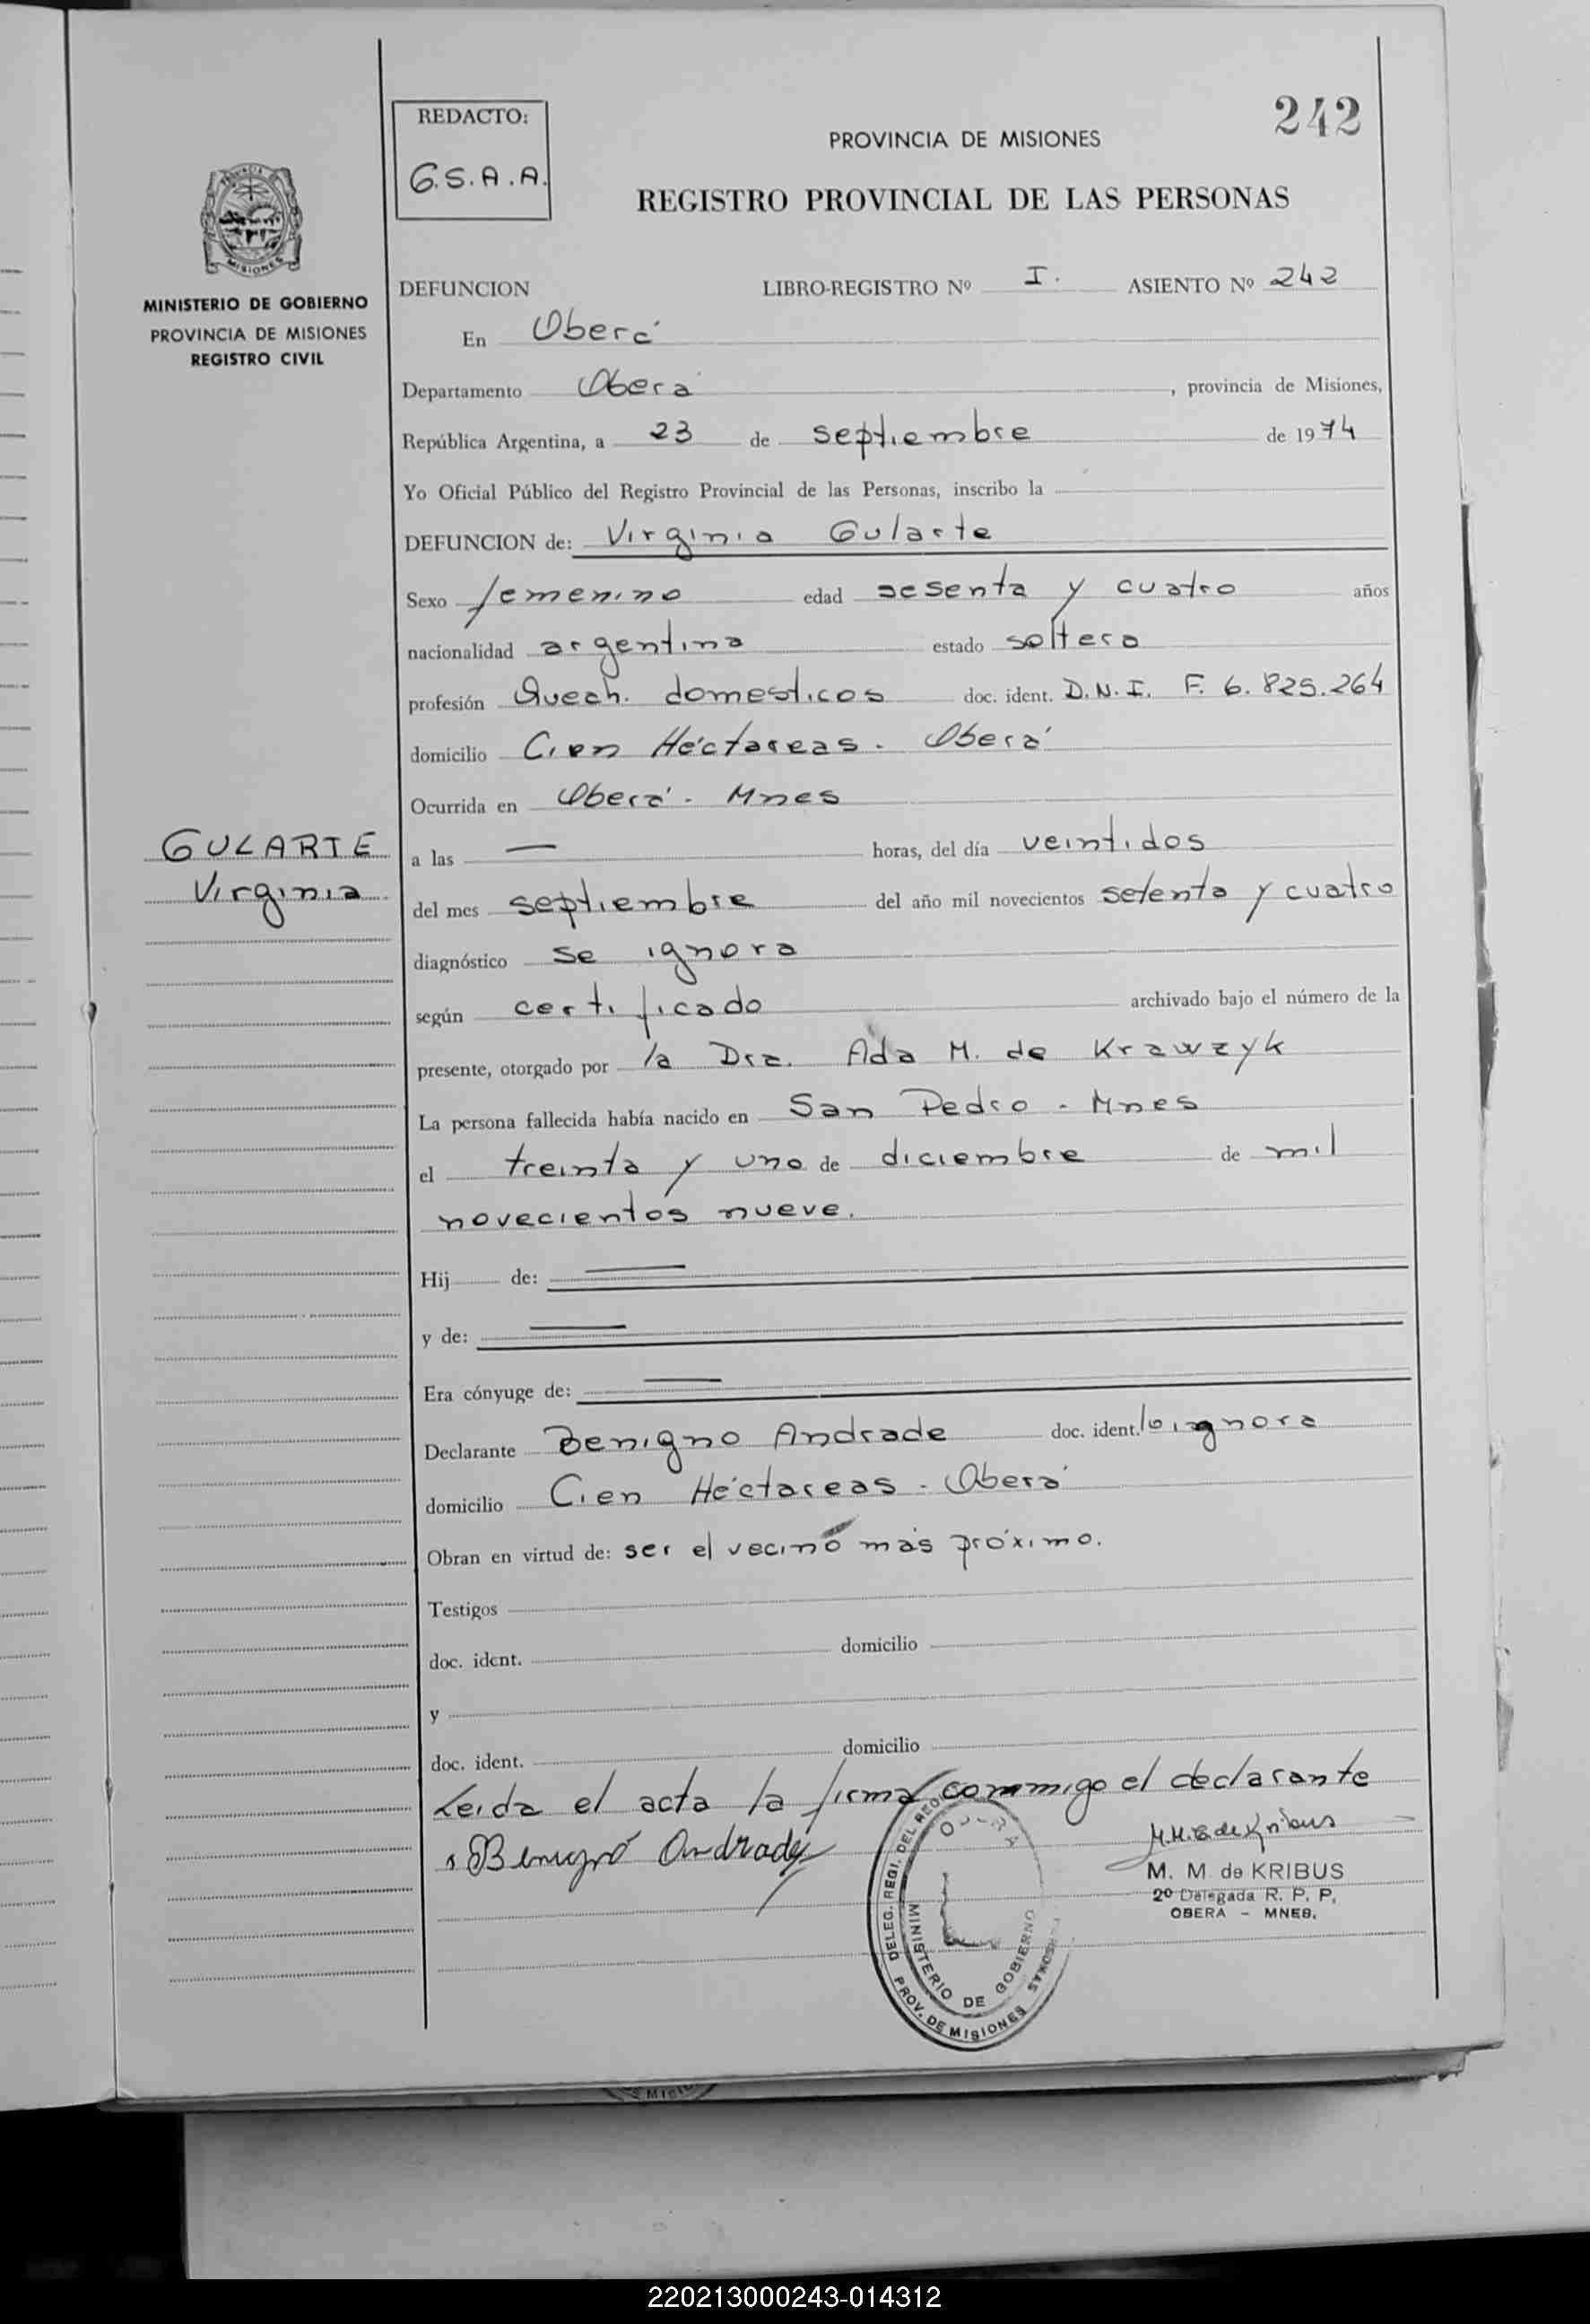 242
REDACTO:
G.S.A.A.
PROVINCIA DE MISIONES
REGISTRO PROVINCIAL DE LAS PERSONAS
MISIONES
MINISTERIO DE GOBIERNO
PROVINCIA DE MISIONES
REGISTRO CIVIL
DEFUNCION LIBRO-REGISTRO Nº I. ASIENTO Nº 242
En Oberá
Departamento Oberá, provincia de Misiones,
República Argentina, a 23 de septiembre de 1974
Yo Oficial Público del Registro Provincial de las Personas, inscribo la
DEFUNCION de: Virginia Gularte
Sexo femenino edad sesenta y cuatro años
nacionalidad argentina estado soltera
profesión Quech. domesticos doc. ident. D.N.I. F. 6.825.264
domicilio Cien Héctareas. Oberá
Ocurrida en Oberá - Mnes
GULARTE
Virginia
a las — horas, del día veintidos
del mes septiembre del año mil novecientos setenta y cuatro
diagnóstico se ignora
según certificado archivado bajo el número de la
presente, otorgado por la Dra. Ada M. de Krawzyk
La persona fallecida había nacido en San Pedro - Mnes
el treinta y uno de diciembre de mil
novecientos nueve.
Hij de: —
y de: —
Era cónyuge de: —
Declarante Benigno Andrade doc. ident. lo ignora
domicilio Cien Héctareas - Oberá
Obran en virtud de: ser el vecino más próximo.
Testigos
doc. ident. domicilio
y
doc. ident. domicilio
Leida el acta la firma conmigo el declarante
Benigno Andrade
M. M. de KRIBUS
2º Delegada R. P. P.
OBERA - MNES.
DELEG. REGI. DEL REG PERSONAS
OBERA
MINISTERIO DE GOBIERNO
PROV. DE MISIONES
220213000243-014312